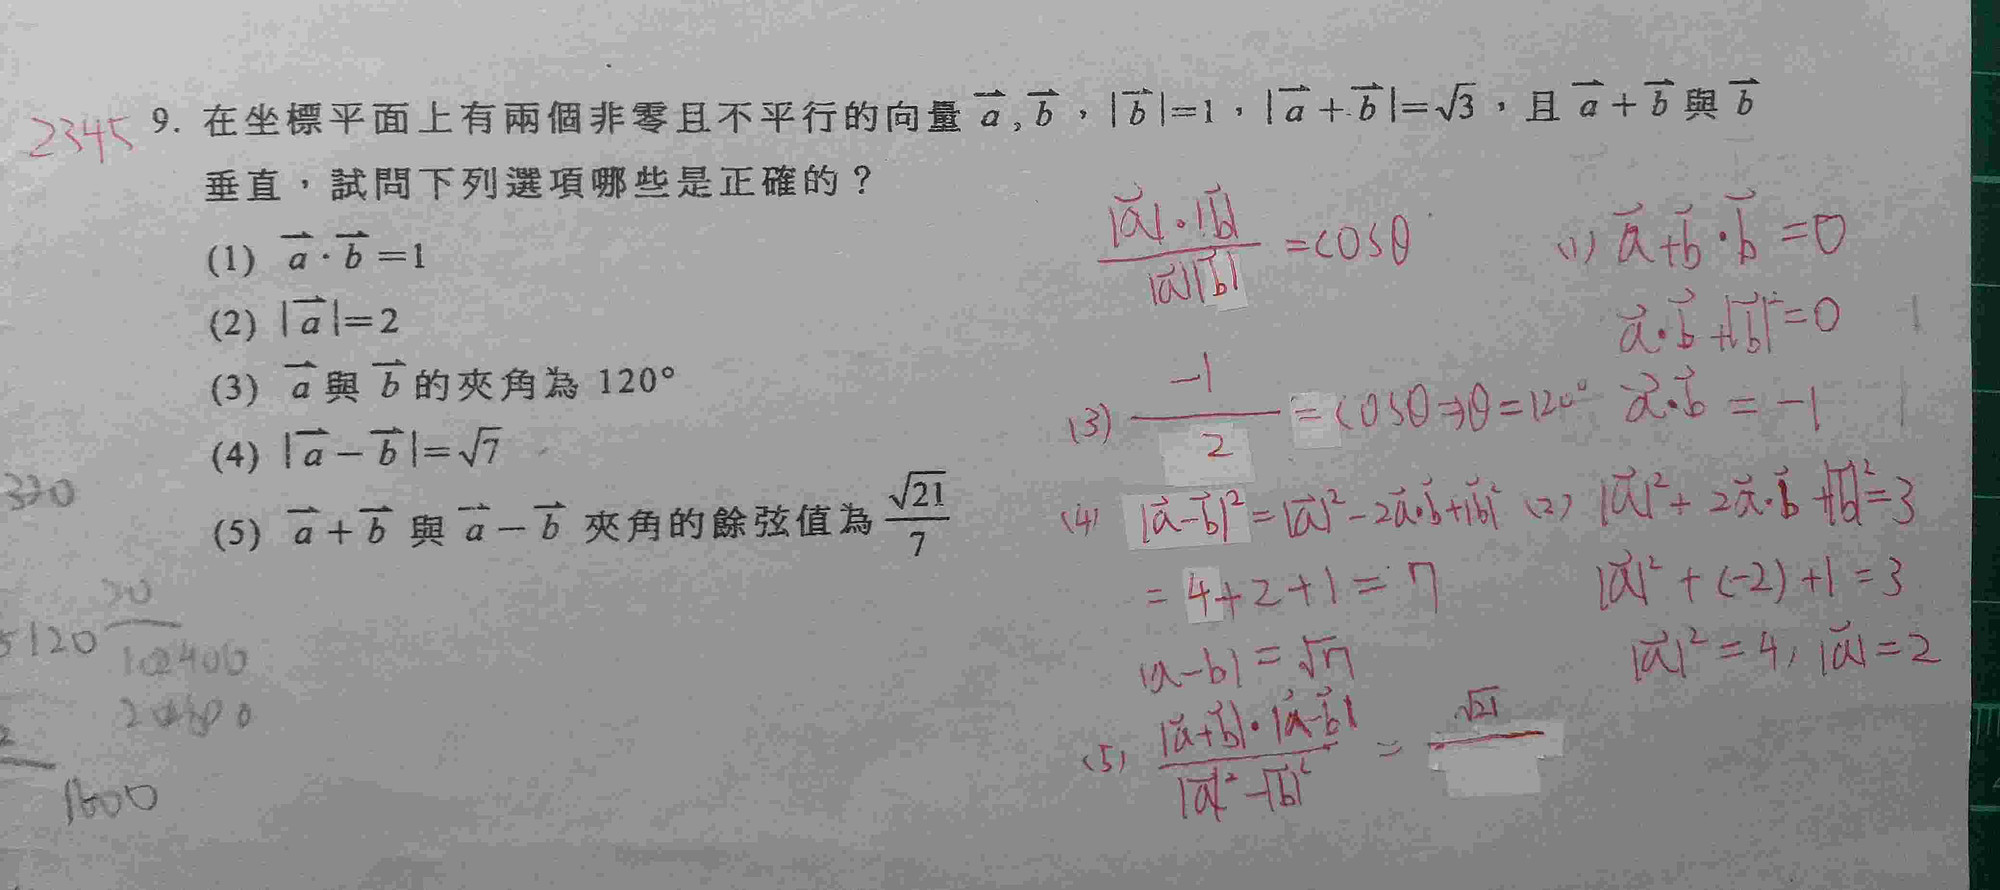 2345
9. 在坐標平面上有兩個非零且不平行的向量 a⃗, b⃗，|b⃗|=1，|a⃗+b⃗|=√3，且 a⃗+b⃗ 與 b⃗
垂直，試問下列選項哪些是正確的？
(1) a⃗·b⃗=1
(2) |a⃗|=2
(3) a⃗ 與 b⃗ 的夾角為 120°
(4) |a⃗-b⃗|=√7
(5) a⃗+b⃗ 與 a⃗-b⃗ 夾角的餘弦值為 √21/7
|a⃗|·|b⃗| / |a⃗||b⃗| = cosθ
(1) a⃗+b⃗·b⃗=0
a⃗·b⃗+|b⃗|²=0
a⃗·b⃗=-1
(2) |a⃗|²+2a⃗·b⃗+|b⃗|²=3
|a⃗|²+(-2)+1=3
|a⃗|²=4, |a⃗|=2
(3) -1/2 = cosθ⇒θ=120°
(4) |a⃗-b⃗|²=|a⃗|²-2a⃗·b⃗+|b⃗|²
=4+2+1=7
|a-b|=√7
(5) |a⃗+b⃗|·|a⃗-b⃗| / |a⃗|²-|b⃗|² = √21
330
5120
102400
1600